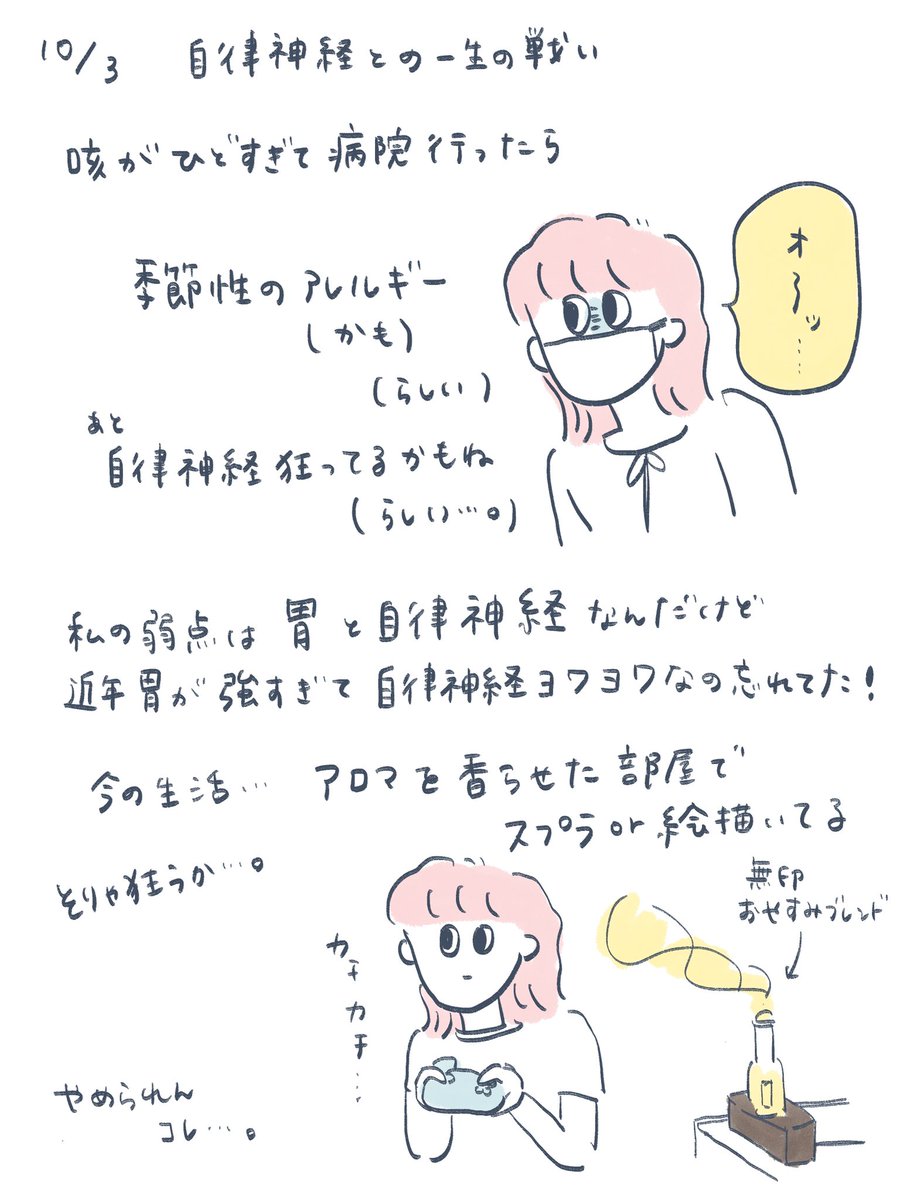 10/3 自律神経との一生の戦い
咳がひどすぎて病院行ったら
季節性のアレルギー
(かも)
(らしい)
あと
自律神経狂ってるかもね
(らしい…。)
オ〜ッ……
私の弱点は胃と自律神経なんだけど
近年胃が強すぎて自律神経ヨワヨワなの忘れてた!
今の生活… アロマを香らせた部屋で
スプラor絵描いてる
そりゃ狂うか…。
無印
おやすみブレンド
カチカチ…
やめられん
コレ…。